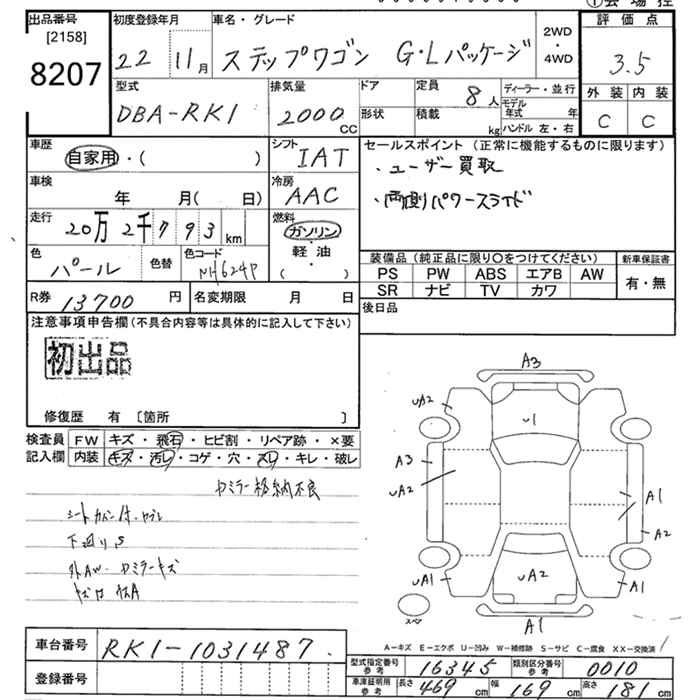 ①会場控
出品番号
[2158]
8207
初度登録年月
22 11月
車名・グレード
ステップワゴン G・Lパッケージ
2WD
・
4WD
評価点
3.5
外装 内装
C C
型式
DBA-RK1
排気量
2000 CC
ドア
形状
定員 8人
積載 kg
ディーラー・並行
モデル年式 年
ハンドル 左・右
車歴
自家用・( )
シフト
IAT
セールスポイント(正常に機能するものに限ります)
・ユーザー買取
・両側パワースライド
車検
年 月( 日)
冷房
AAC
走行
20万2千793km
燃料
ガソリン
軽油
( )
色
パール
色替
色コード
NH624P
装備品(純正品に限り○をつけてください)
新車保証書
PS PW ABS エアB AW
SR ナビ TV カワ
有・無
R券 13700円
名変期限 月 日
後日品
注意事項申告欄(不具合内容等は具体的に記入して下さい)
初出品
修復歴 有 [箇所 ]
検査員記入欄
FW キズ・飛石・ヒビ割・リペア跡・×要
内装 キズ・汚レ・コゲ・穴・スレ・キレ・破レ
カミラー格納不良
シートカバー付
下廻りS
外AW
A3
UA2
U1
A3
UA2
A1
A2
UA1
UA2
A1
スペア
A1
A-キズ E-エクボ U-凹み W-補修跡 S-サビ C-腐食 XX-交換済
車台番号 RK1-1031487
登録番号
型式指定番号 参考 16345
類別区分番号 参考 0010
車庫証明用 参考 長さ 469cm 幅 169cm 高さ 181cm